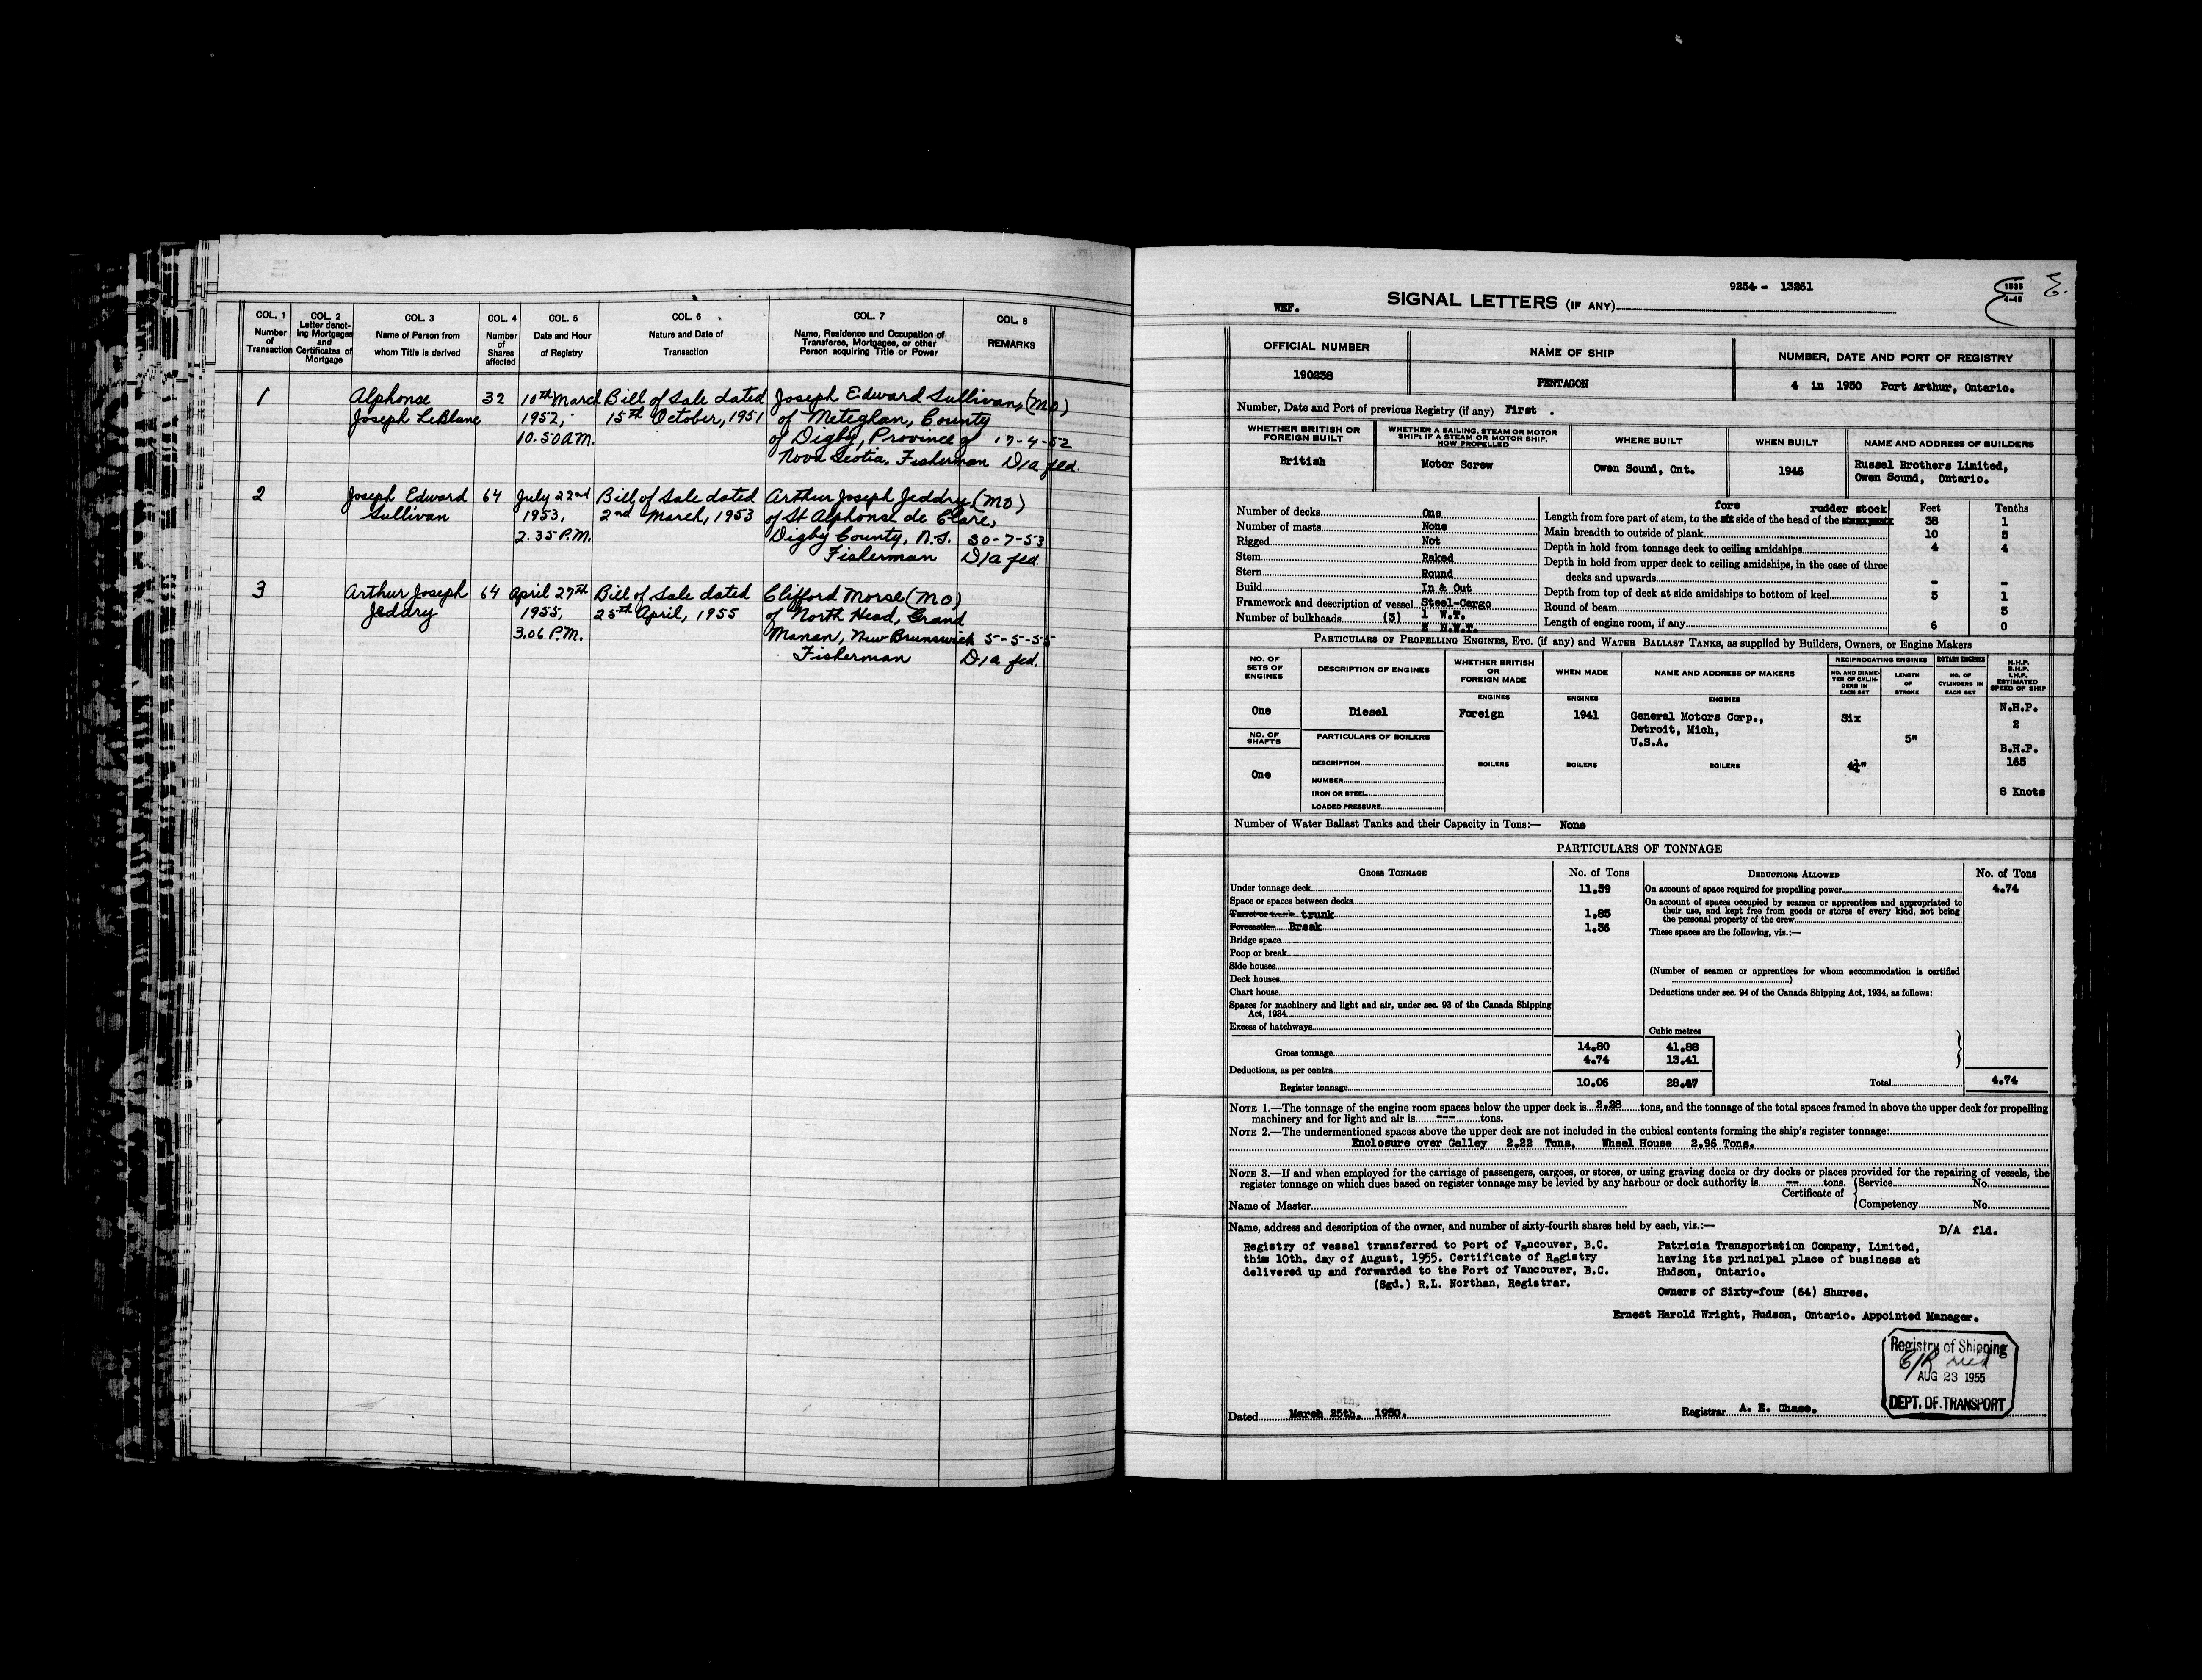 COL. 1
Number
of
Transaction
COL. 2
Letter denot-
ing Mortgages
and
Certificates of
Mortgage
COL. 3
Name of Person from
whom Title is derived
COL. 4
Number
of
Shares
affected
COL. 5
Date and Hour
of Registry
COL. 6
Nature and Date of
Transaction
COL. 7
Name, Residence and Occupation of
Transferee, Mortgagee, or other
Person acquiring Title or Power
COL. 8
REMARKS
1 Alphonse 32 10th March Bill of Sale dated Joseph Edward Sullivan, (MO)
Joseph LeBlanc 1952; 15th October, 1951 of Meteghan, County
10.50 A.M. of Digby, Province of 17-4-52
Nova Scotia, Fisherman D/a fld.
2 Joseph Edward 64 July 22nd Bill of Sale dated Arthur Joseph Jeddry (MO)
Sullivan 1953, 2nd March, 1953 of St Alphonse de Clare,
2.35 P.M. Digby County, N.S. 30-7-53
Fisherman D/a fld.
3 Arthur Joseph 64 April 27th Bill of Sale dated Clifford Morse (MO)
Jeddry 1955, 25th April, 1955 of North Head, Grand
3.06 P.M. Manan, New Brunswick 5-5-55
Fisherman D/a fld.
9254 - 13261
WEF. SIGNAL LETTERS (IF ANY)
1535
4-49
OFFICIAL NUMBER
NAME OF SHIP
NUMBER, DATE AND PORT OF REGISTRY
190238
PENTAGON
4 in 1950 Port Arthur, Ontario.
Number, Date and Port of previous Registry (if any) First .
WHETHER BRITISH OR
FOREIGN BUILT
WHETHER A SAILING, STEAM OR MOTOR
SHIP; IF A STEAM OR MOTOR SHIP,
HOW PROPELLED
WHERE BUILT
WHEN BUILT
NAME AND ADDRESS OF BUILDERS
British
Motor Screw
Owen Sound, Ont.
1946
Russel Brothers Limited,
Owen Sound, Ontario.
Number of decks One
Number of masts None
Rigged Not
Stem Raked
Stern Round
Build In & Out
Framework and description of vessel Steel-Cargo
Number of bulkheads (3) 1 W.T.
2 N.W.T.
fore rudder stock Feet Tenths
Length from fore part of stem, to the side of the head of the 38 1
Main breadth to outside of plank 10 5
Depth in hold from tonnage deck to ceiling amidships 4 4
Depth in hold from upper deck to ceiling amidships, in the case of three
decks and upwards - -
Depth from top of deck at side amidships to bottom of keel 5 1
Round of beam 3
Length of engine room, if any 6 0
PARTICULARS OF PROPELLING ENGINES, ETC. (if any) and WATER BALLAST TANKS, as supplied by Builders, Owners, or Engine Makers
NO. OF
SETS OF
ENGINES
DESCRIPTION OF ENGINES
WHETHER BRITISH
OR
FOREIGN MADE
WHEN MADE
NAME AND ADDRESS OF MAKERS
RECIPROCATING ENGINES
ROTARY ENGINES
NO. AND DIAME-
TER OF CYLIN-
DERS IN
EACH SET
LENGTH
OF
STROKE
NO. OF
CYLINDERS IN
EACH SET
N.H.P.
B.H.P.
I.H.P.
ESTIMATED
SPEED OF SHIP
ENGINES
ENGINES
ENGINES
One
Diesel
Foreign
1941
General Motors Corp.,
Detroit, Mich,
U.S.A.
Six
5"
4¼"
N.H.P.
2
B.H.P.
165
8 Knots
NO. OF
SHAFTS
One
PARTICULARS OF BOILERS
DESCRIPTION
NUMBER
IRON OR STEEL
LOADED PRESSURE
BOILERS
BOILERS
BOILERS
Number of Water Ballast Tanks and their Capacity in Tons:— None
PARTICULARS OF TONNAGE
GROSS TONNAGE No. of Tons
Under tonnage deck 11.59
Space or spaces between decks
Turret or trunk trunk 1.85
Forecastle Break 1.36
Bridge space
Poop or break
Side houses
Deck houses
Chart house
Spaces for machinery and light and air, under sec. 93 of the Canada Shipping
Act, 1934
Excess of hatchways
Cubic metres
Gross tonnage 14.80 41.88
Deductions, as per contra 4.74 13.41
Register tonnage 10.06 28.47
DEDUCTIONS ALLOWED No. of Tons
On account of space required for propelling power 4.74
On account of spaces occupied by seamen or apprentices and appropriated to
their use, and kept free from goods or stores of every kind, not being
the personal property of the crew
These spaces are the following, viz.:—
(Number of seamen or apprentices for whom accommodation is certified
)
Deductions under sec. 94 of the Canada Shipping Act, 1934, as follows:
Total 4.74
NOTE 1.—The tonnage of the engine room spaces below the upper deck is 2.28 tons, and the tonnage of the total spaces framed in above the upper deck for propelling
machinery and for light and air is --- tons.
NOTE 2.—The undermentioned spaces above the upper deck are not included in the cubical contents forming the ship's register tonnage:
Enclosure over Galley 2.22 Tons, Wheel House 2.96 Tons.
NOTE 3.—If and when employed for the carriage of passengers, cargoes, or stores, or using graving docks or dry docks or places provided for the repairing of vessels, the
register tonnage on which dues based on register tonnage may be levied by any harbour or dock authority is -- tons.
Certificate of
Service No.
Competency No.
Name of Master
Name, address and description of the owner, and number of sixty-fourth shares held by each, viz.:—
D/A fld.
Registry of vessel transferred to Port of Vancouver, B.C.
this 10th. day of August, 1955. Certificate of Registry
delivered up and forwarded to the Port of Vancouver, B.C.
(Sgd.) R.L. Northan, Registrar.
Patricia Transportation Company, Limited,
having its principal place of business at
Hudson, Ontario.
Owners of Sixty-four (64) Shares.
Ernest Harold Wright, Hudson, Ontario. Appointed Manager.
Registry of Shipping
AUG 23 1955
DEPT. OF TRANSPORT
Dated March 25th, 1950.
Registrar A. E. Chase.